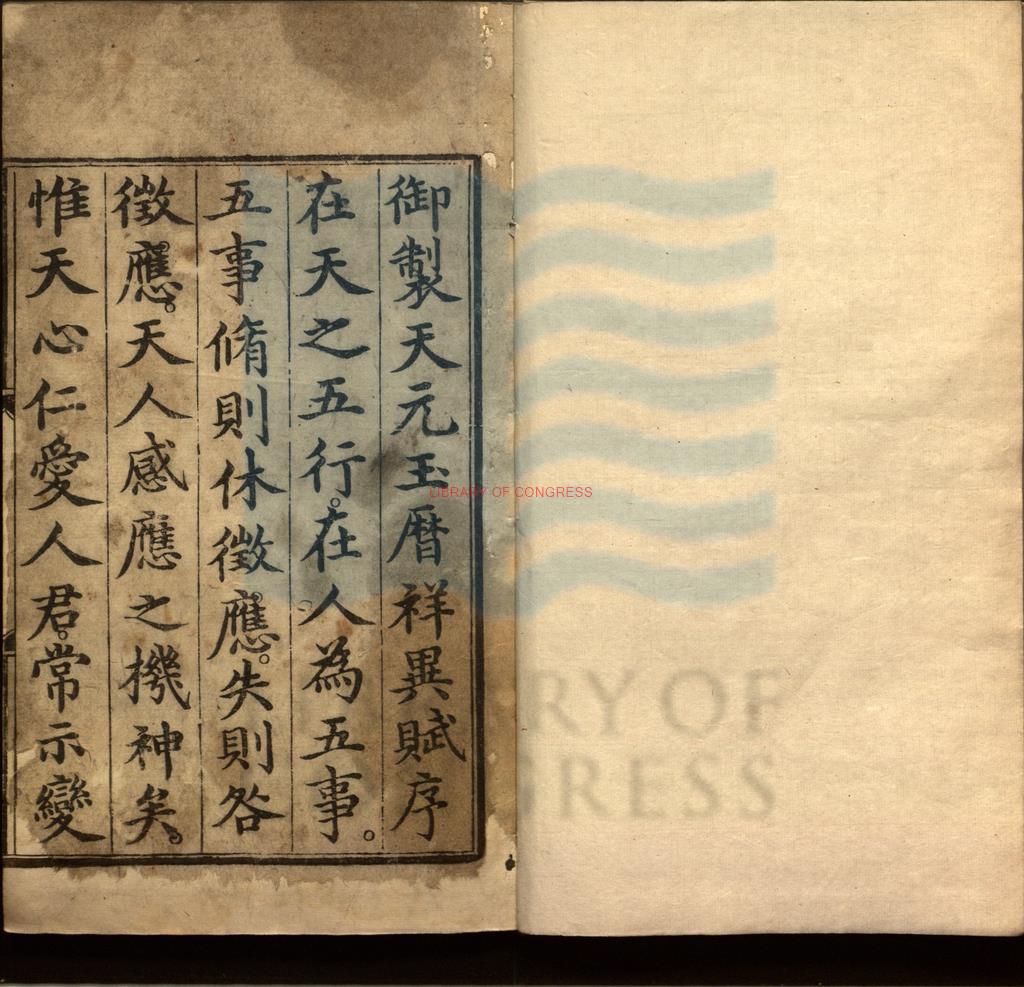 御製天元玉曆祥異賦序
在天之五行。在人為五事。
五事脩則休徵應。失則咎
徵應。天人感應之機神矣。
惟天心仁愛人君。常示變
LIBRARY OF CONGRESS
RY OF
GRESS